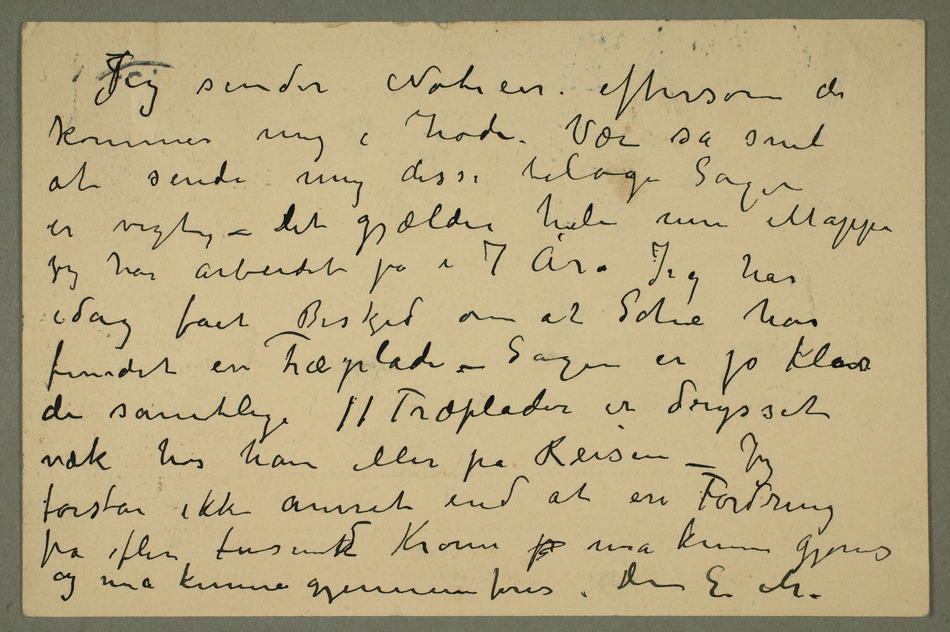 Jeg sender Notiser eftersom de
kommer mig i hode. Vær så snil
at sende mig disse tilbage Sagen
er vigtig – Det gjælder hele min Mappe
jeg har arbeidet på i 7 År. Jeg har
idag fået Beskjed om at Schie har
fundet en Træplade – Sagen er jo klar
de samtlige 11 Træplader er drysset
væk hos ham eller på Reisen – Jeg
forstår ikke annet end at en Fordring
på flere tusind Kroner må kunne gjøres
og må kunne gjennemføres. Din E. M.